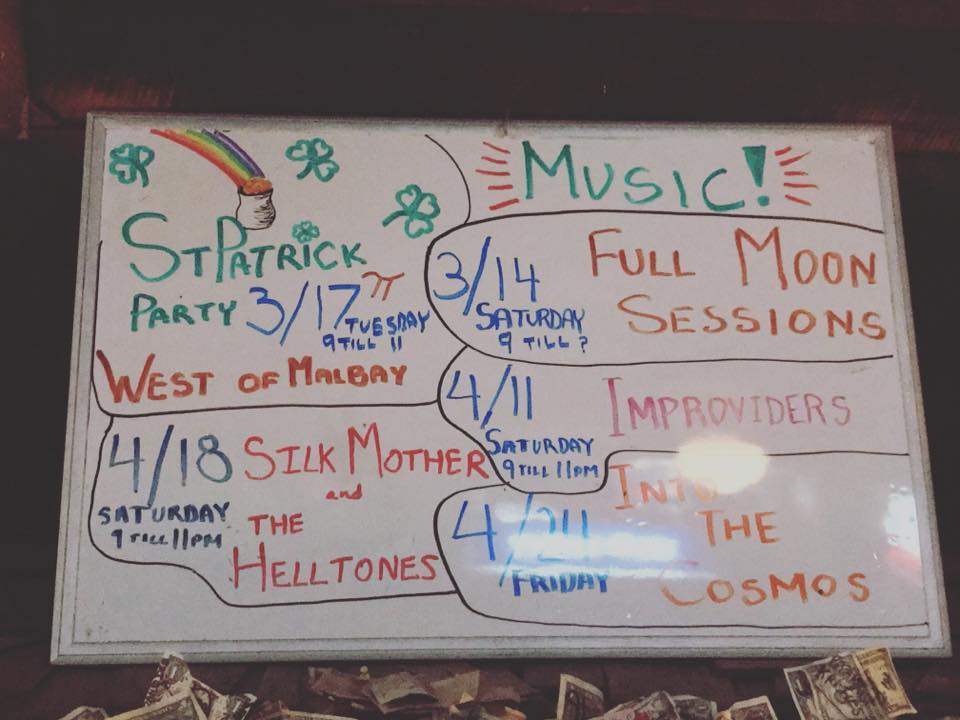 ST PATRICK
PARTY 3/17 π
TUESDAY
9 TILL 11
WEST OF MALBAY
MUSIC!
3/14 FULL MOON
SATURDAY SESSIONS
9 TILL ?
4/11 IMPROVIDERS
SATURDAY
9 TILL 11PM
4/18 SILK MOTHER
SATURDAY and
9 TILL 11PM THE
HELLTONES
4/24 INTO
FRIDAY THE
COSMOS